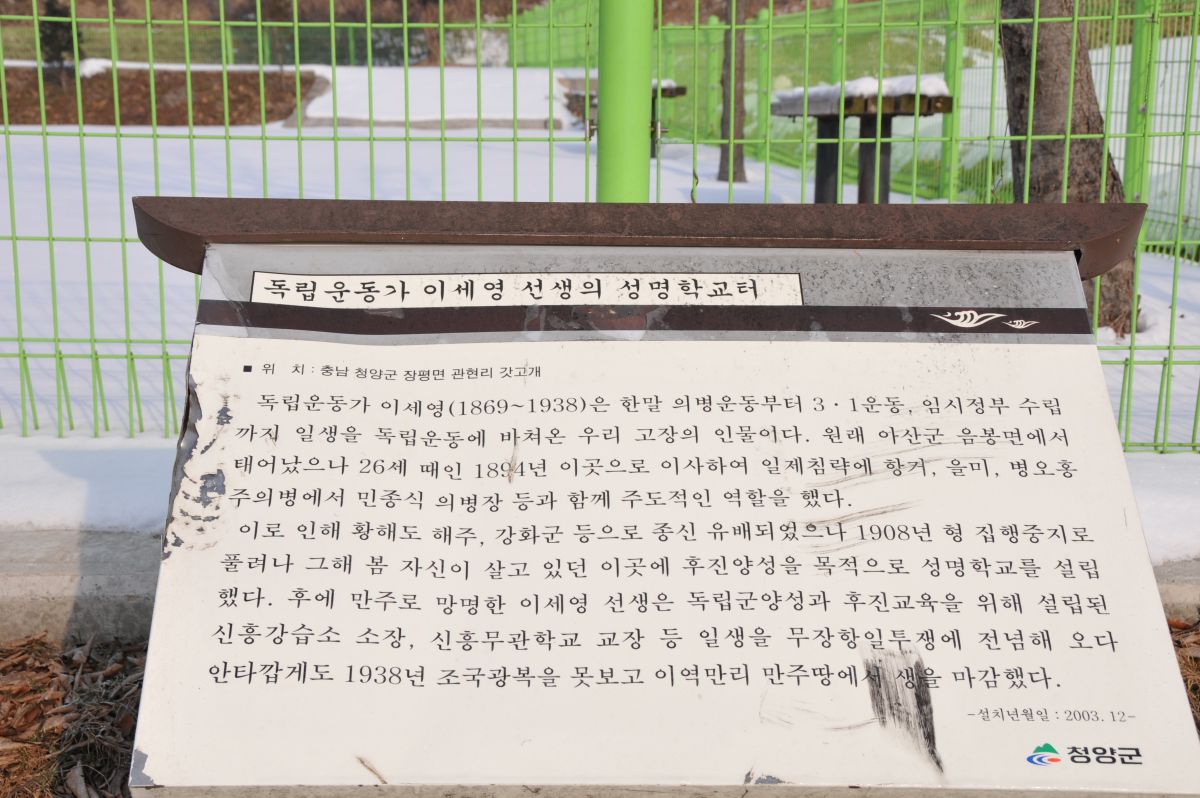 독립운동가 이세영 선생의 성명학교터
■ 위 치 : 충남 청양군 장평면 관현리 갓고개
독립운동가 이세영(1869~1938)은 한말 의병운동부터 3·1운동, 임시정부 수립
까지 일생을 독립운동에 바쳐온 우리 고장의 인물이다. 원래 아산군 음봉면에서
태어났으나 26세 때인 1894년 이곳으로 이사하여 일제침략에 항거, 을미, 병오홍
주의병에서 민종식 의병장 등과 함께 주도적인 역할을 했다.
이로 인해 황해도 해주, 강화군 등으로 종신 유배되었으나 1908년 형 집행중지로
풀려나 그해 봄 자신이 살고 있던 이곳에 후진양성을 목적으로 성명학교를 설립
했다. 후에 만주로 망명한 이세영 선생은 독립군양성과 후진교육을 위해 설립된
신흥강습소 소장, 신흥무관학교 교장 등 일생을 무장항일투쟁에 전념해 오다
안타깝게도 1938년 조국광복을 못보고 이역만리 만주땅에서 생을 마감했다.
-설치년월일 : 2003. 12-
청양군